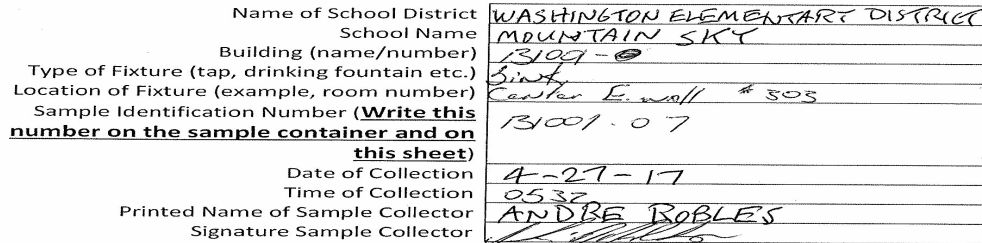 Name of School District WASHINGTON ELEMENTARY DISTRICT
School Name MOUNTAIN SKY
Building (name/number)
Type of Fixture (tap, drinking fountain etc.) Sink
Location of Fixture (example, room number) Center E. wall # 303
Sample Identification Number (Write this
number on the sample container and on B1001.07
this sheet)
Date of Collection 4-27-17
Time of Collection 0532
Printed Name of Sample Collector ANDRE ROBLES
Signature Sample Collector